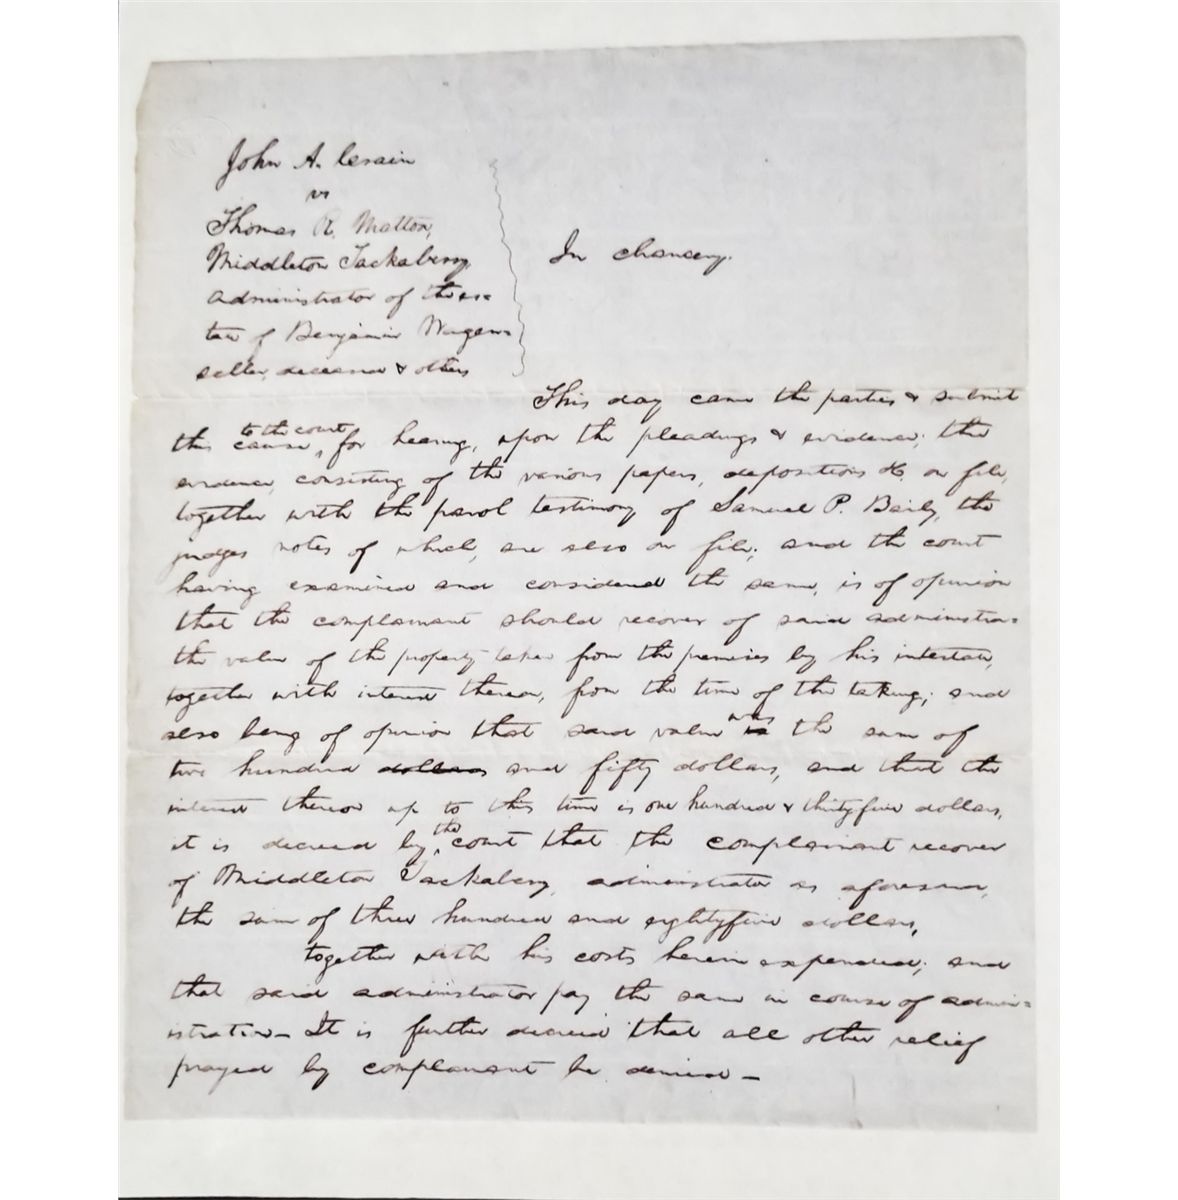 John A. Cerain
vs
Thomas R. Matton,
Middleton Tackaberry,
administrator of the es=
tate of Benjamin Wagen=
seller, deceased & others
In chancery.
This day came the parties & submit
this cause, to the court, for hearing, upon the pleadings & evidence; the
evidence, consisting of the various papers, depositions &c. on file,
together with the parol testimony of Samuel P. Baily, the
judges notes of which, are also on file; and the court
having examined and considered the same, is of opinion
that the complainant should recover of said administra=
the value of the property taken from the premises by his intestate,
together with interest thereon, from the time of the taking; and
also being of opinion that said value is was the sum of
two hundred dollars and fifty dollars, and that the
interest thereon up to this time is one hundred & thirtyfive dollars,
it is decreed by the court that the complainant recover
of Middleton Tackaberry, administrator as aforesaid,
the sum of three hundred and eightyfive dollars,
together with his costs herein expended; and
that said administrator pay the same in course of admin=
istration_ It is further decreed that all other relief
prayed by complainant be denied_